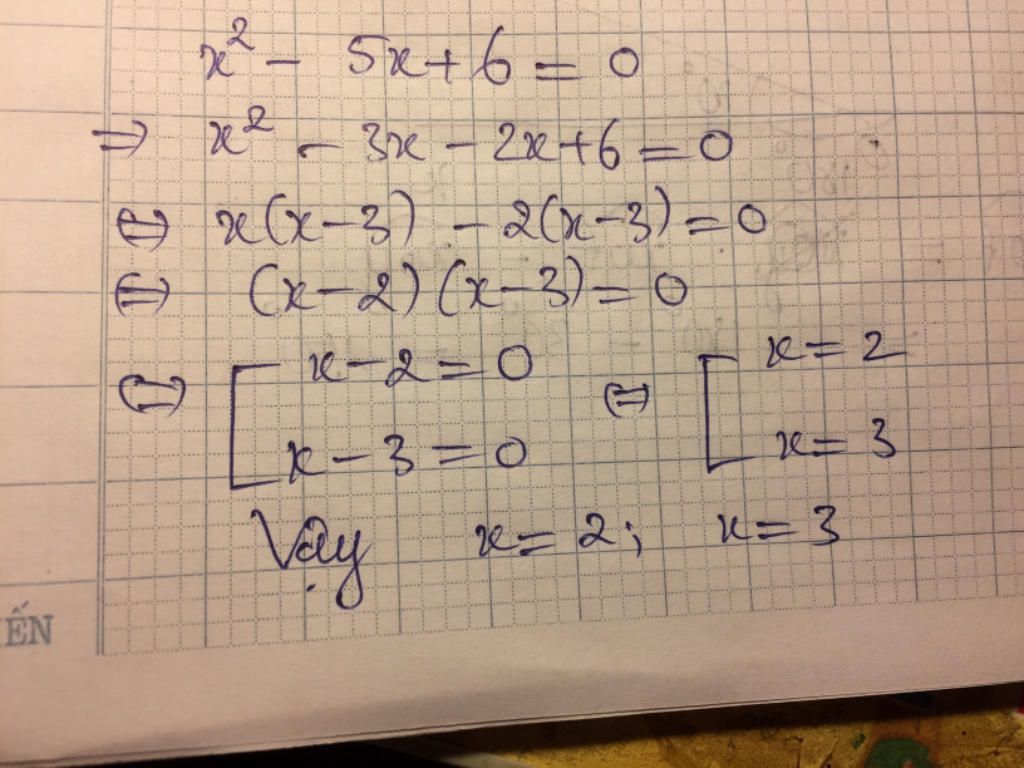 x² - 5x + 6 = 0
⇒ x² - 3x - 2x + 6 = 0
⇔ x(x - 3) - 2(x - 3) = 0
⇔ (x - 2)(x - 3) = 0
⇔ [ x - 2 = 0 ⇔ [ x = 2
x - 3 = 0 x = 3
Vậy x = 2; x = 3
ẾN